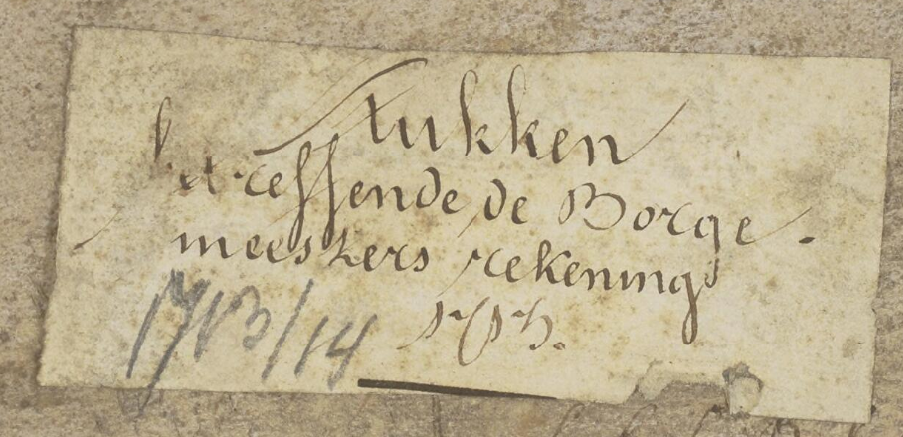 Stukken
betreffende de Borge-
meesters rekening
1713/14